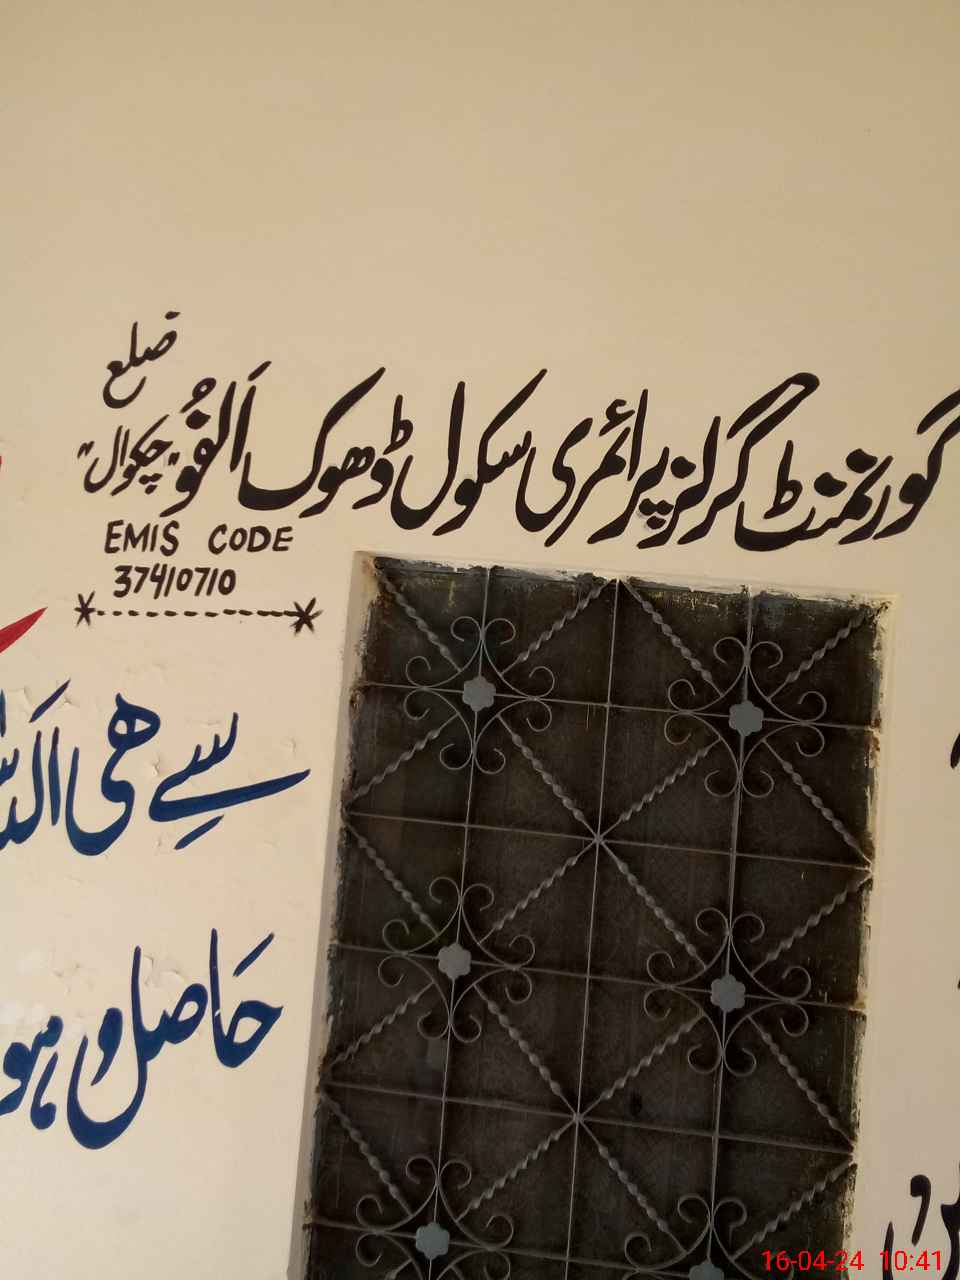 گورنمنٹ گرلز پرائمری سکول ڈھوک اَلفُو "چکوال"
ضلع
EMIS CODE
37410710
سے ھی
حَاصل و
16-04-24 10:41